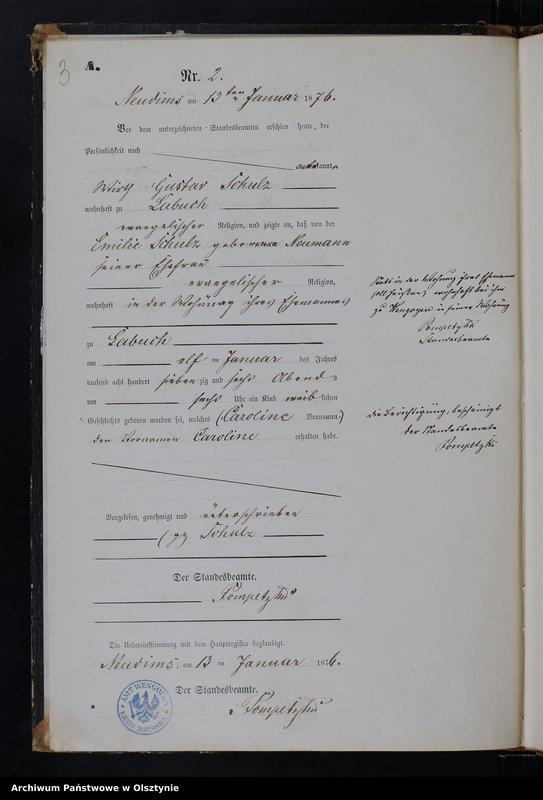 3
A.
Nr. 2.
Neudims am 13ten Januar 1876.
Vor dem unterzeichneten Standesbeamten erschien heute, der
Persönlichkeit nach
kannt,
Wirth Gustav Schulz
wohnhaft zu Labuch
evangelischer Religion, und zeigte an, daß von der
Emilie Schulz geborenen Neumann
seiner Ehefrau
evangelischer Religion,
wohnhaft in der Wohnung ihres Ehemannes
zu Labuch
am elf ten Januar des Jahres
tausend acht hundert siebenzig und sechs Abends
um sechs Uhr ein Kind weiblichen
Geschlechts geboren worden sei, welches (Caroline Vornamen)
den Vornamen Caroline erhalten habe.
Vorgelesen, genehmigt und unterschrieben
(gz Schulz
Der Standesbeamte.
Pompetzki
Die Uebereinstimmung mit dem Hauptregister beglaubigt.
Neudims, am 13 ten Januar 1876.
Der Standesbeamte.
Pompetzki
AMT WENGOYEN
KREIS ROESSEL
Statt in der Wohnung ihres Ehemannes
soll heißen, bei ihm
zu Wengoyen in seiner Wohnung
Pompetzki
Standesbeamte
die Berichtigung bescheinigt
der Standesbeamte
Pompetzki
Archiwum Państwowe w Olsztynie